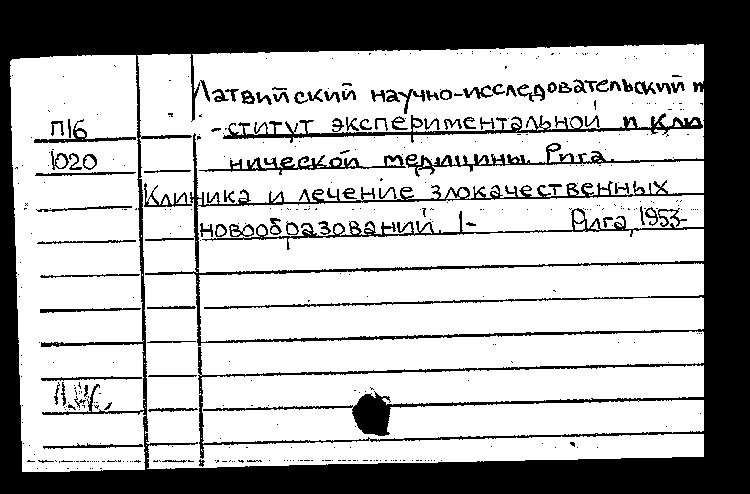 Латвийский научно-исследовательский
П16 -ститут экспериментальной и кли
1020 нической медицины. Рига.
Клиника и лечение злокачественных
новообразований. 1- Рига, 1953-